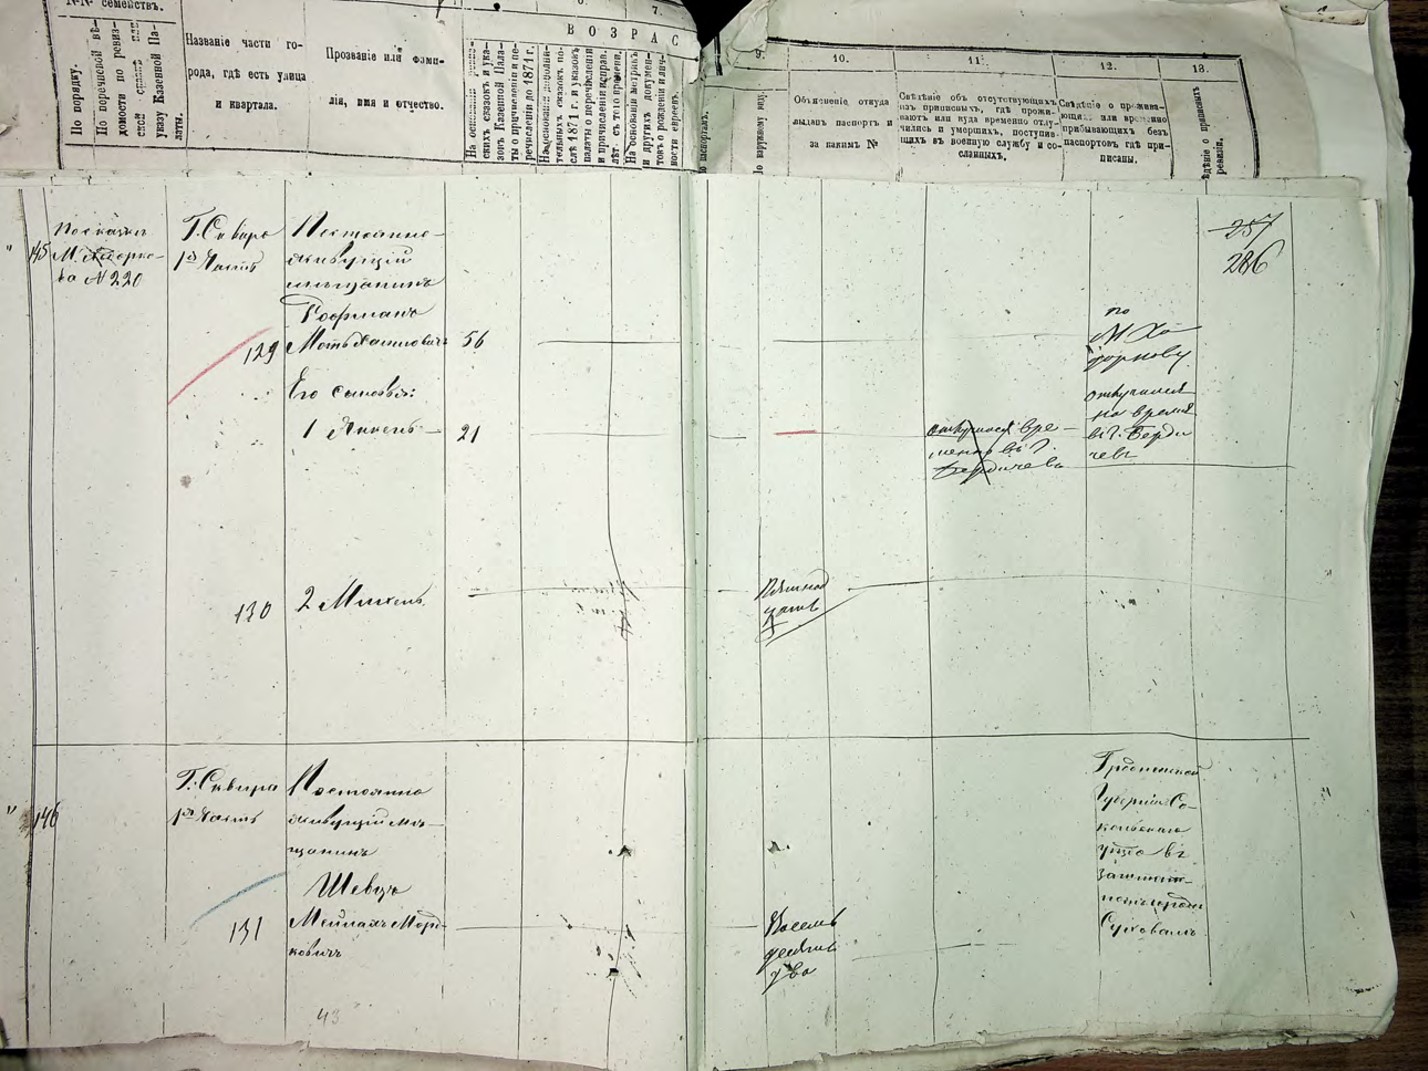 №№ семействъ.
По порядку.
По перечневой вѣ-
домости по ревиз-
ской сказкѣ или
указу Казенной Па-
латы.
Названіе части го-
рода, гдѣ есть улица
и квартала.
Прозваніе или фами-
лія, имя и отчество.
7.
ВОЗРАС
На основаніи ревиз-
скихъ сказокъ и ука-
зовъ Казенной Пала-
ты о причисленіи и пе-
речисленіи до 1871 г.
На основаніи дополни-
тельныхъ сказокъ по-
слѣ 1871 г. и указовъ
палаты о перечисленіи
и причисленіи исправ.
лѣт. съ того времени.
На основаніи метрикъ
и другихъ докумен-
товъ о рожденіи и лич-
ности евреевъ.
9.
По наружному виду.
10.
Объясненіе откуда
выданъ паспортъ и
за какимъ №
11.
Свѣдѣніе объ отсутствующихъ
изъ приписныхъ, гдѣ прожи-
ваютъ или куда временно отлу-
чились и умершихъ, поступив-
шихъ въ военную службу и со-
сланныхъ.
12.
Свѣдѣніе о прожива-
ющихъ или временно
прибывающихъ безъ
паспортовъ гдѣ при-
писаны.
13.
257
286
145
По сказкѣ
№ 220
Г. Сквира
1я Часть
Постоянно-
живущій
мѣщанинъ
Гофманъ
129
Моть Хаимовичъ
56
по
Его сыновья:
1 Янкель
21
отлучился вре-
менно въ г.
Бердичевъ
отлучился
на время
въ г. Берди
чевъ
130
2 Михель
Пятнад
цать
146
Г. Сквира
1я Часть
Постоянно
живущій мѣ-
щанинъ
Шевцъ
131
Морд-
ковичъ
Восемь
десять
два
Гродненской
Губерніи Со-
кольскаго
уѣзда въ
43